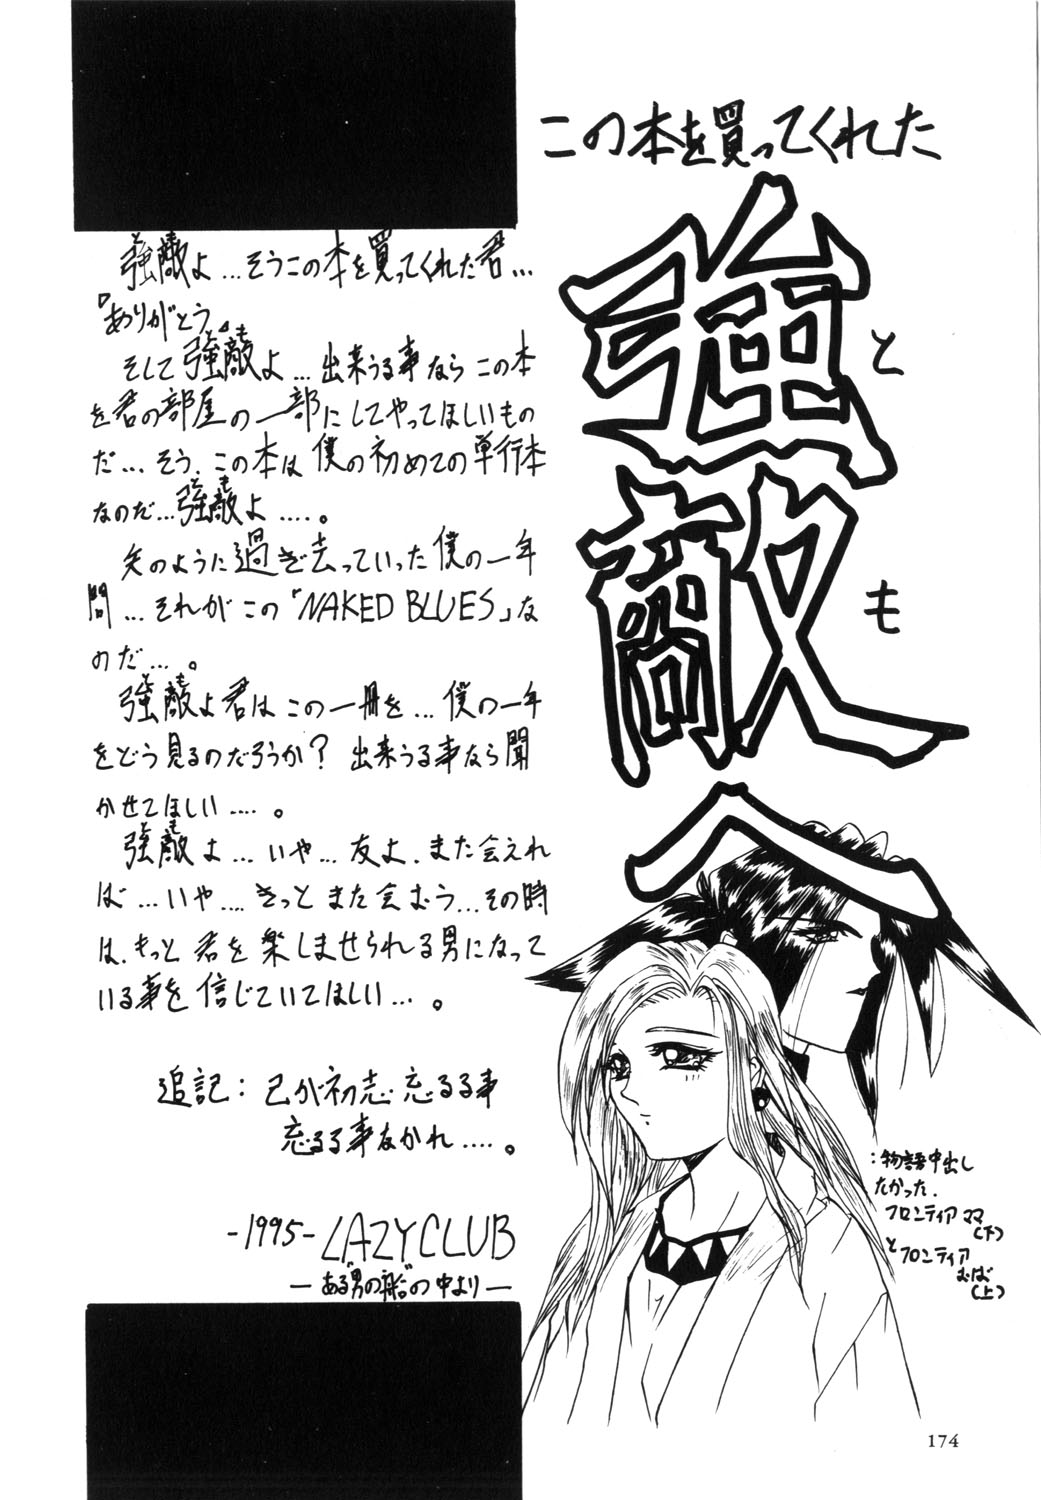 この本を買ってくれた
強敵へ
とも
強敵よ…そうこの本を買ってくれた君…
『ありがとう』
そして強敵よ…出来うる事ならこの本
を君の部屋の一部にしてやってほしいもの
だ…そう、この本は僕の初めての単行本
なのだ…強敵よ….。
矢のように過ぎ去っていった僕の一年
間…それがこの「NAKED BLUES」な
のだ…。
強敵よ君はこの一冊を…僕の一年
をどう見るのだろうか？出来うる事なら聞
かせてほしい….。
強敵よ…いや…友よ、また会えれ
ば…いや….きっとまた会おう…その時
は、もっと君を楽しませられる男になって
いる事を信じていてほしい…。
追記：己が初志忘るる事
忘るる事なかれ….。
-1995-LAZYCLUB
―ある"男の船"の中より―
:物語中出し
たかった、
フロンティアママ
(下)
とフロンティア
むば
(上)
174